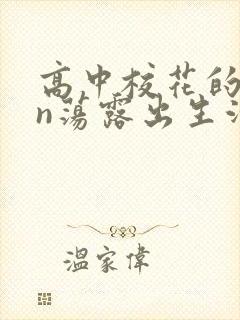 高中校花的
n荡露出生活
温家偉